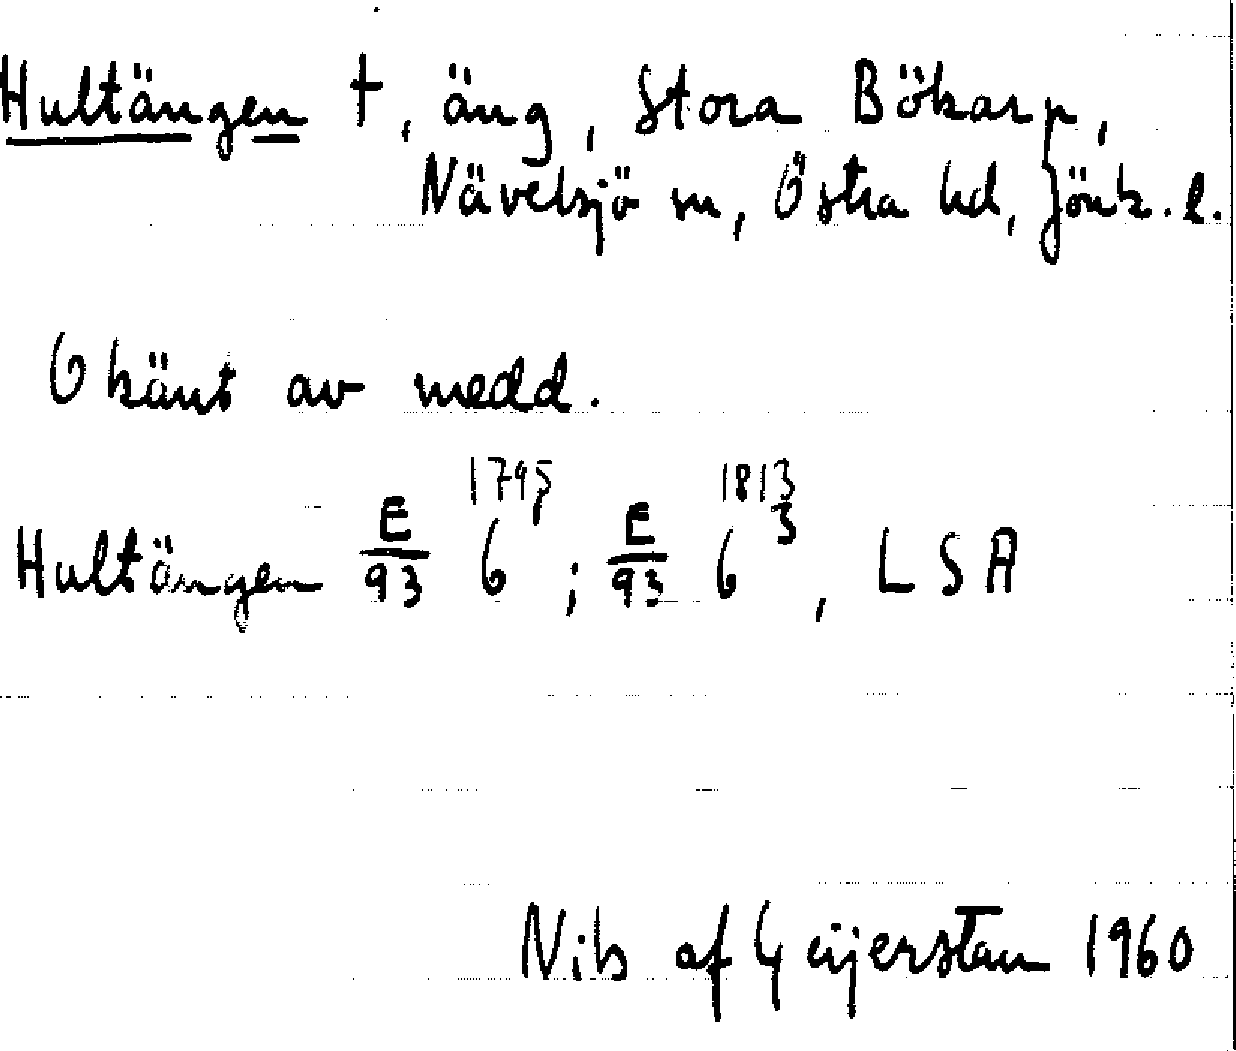 Hultängen †, äng, Stora Bökarp,
Nävelsjö sn, Östra hd, Jönk. l.
Okänt av medd.
Hultängen E/93 1795 6 ; E/93 1813 6 3, LSA
Nils af Geijerstam 1960